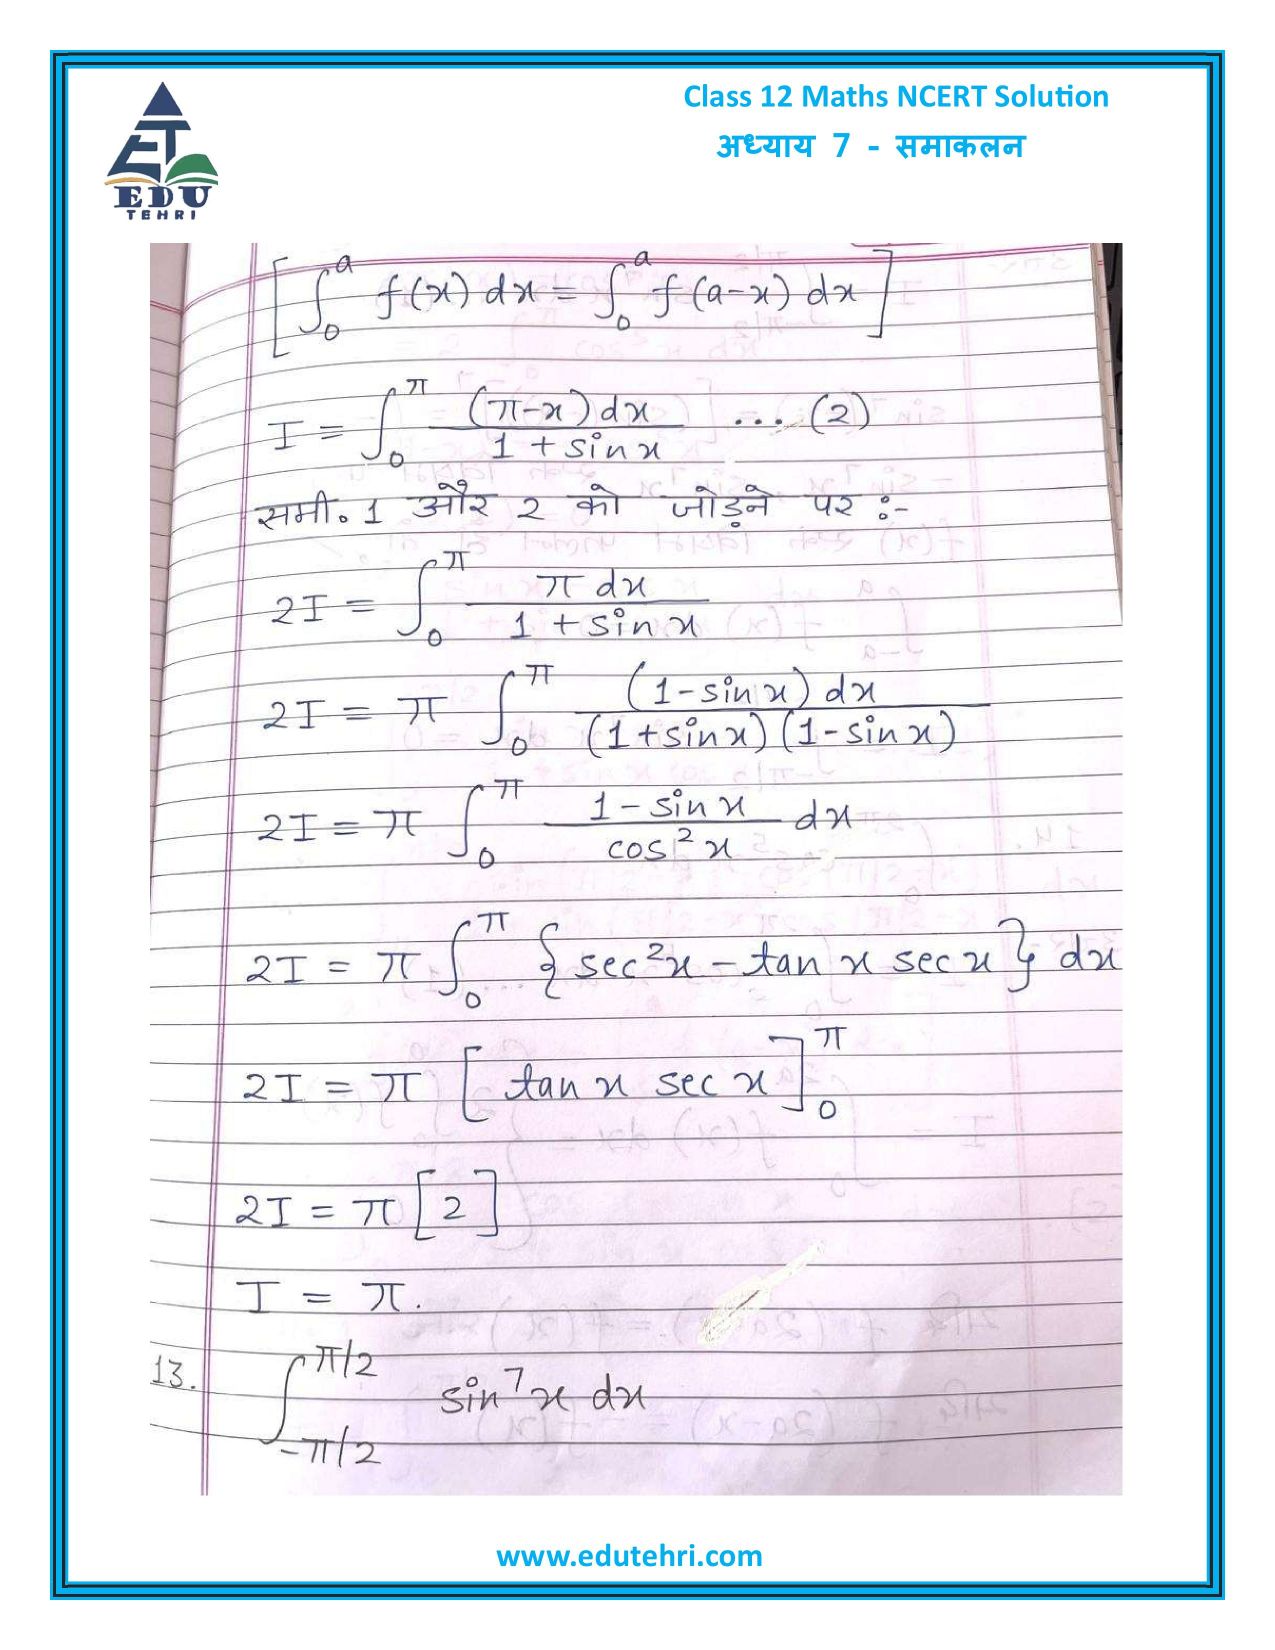 Class 12 Maths NCERT Solution
अध्याय 7 - समाकलन
EDU
TEHRI
[∫₀ᵃ f(x) dx = ∫₀ᵃ f(a-x) dx]
I = ∫₀^π (π-x) dx / 1 + sin x ... (2)
समी. 1 और 2 को जोड़ने पर :-
2I = ∫₀^π π dx / 1 + sin x
2I = π ∫₀^π (1-sin x) dx / (1+sin x) (1-sin x)
2I = π ∫₀^π 1-sin x / cos² x dx
2I = π ∫₀^π {sec² x - tan x sec x} dx
2I = π [tan x sec x]₀^π
2I = π [2]
I = π.
13. ∫_{-π/2}^{π/2} sin⁷ x dx
www.edutehri.com